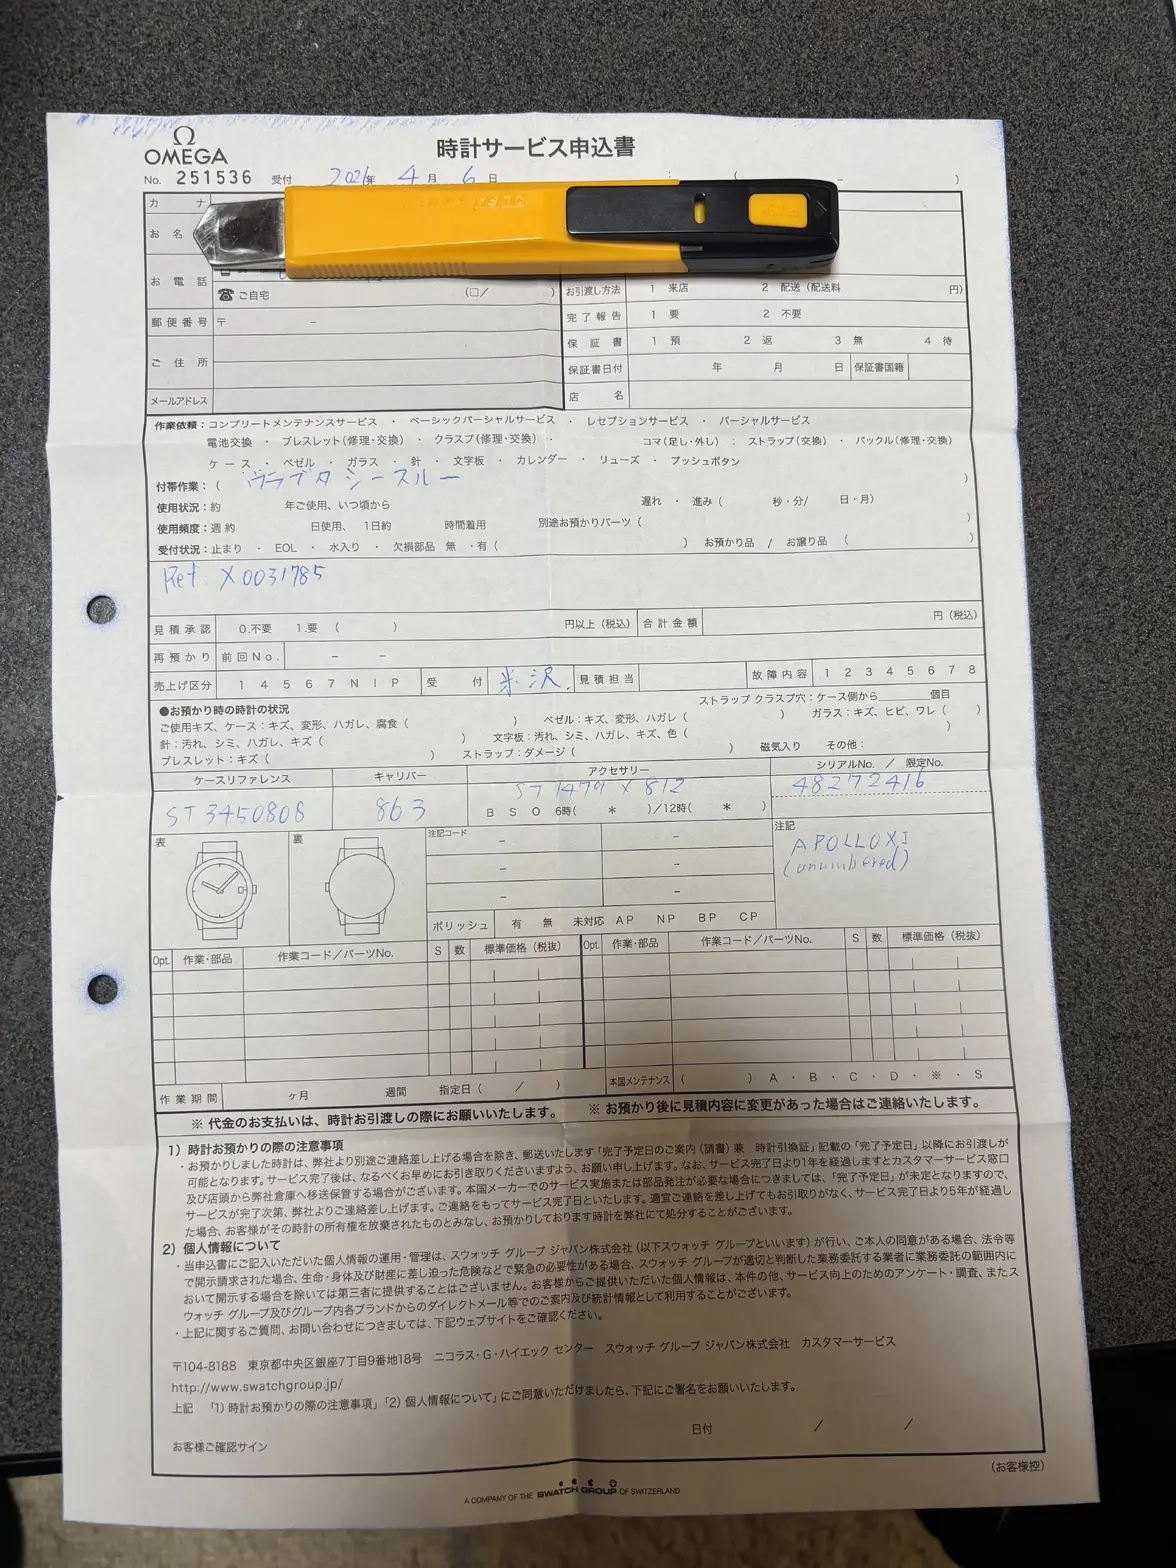 OMEGA
時計サービス申込書
No. 251536 受付 年 4 月 6 日 : ( − )
カ ナ
お 名
お 電 話
☎ ご自宅 (□/ )
お引渡し方法 1 来店 2 配送 (配送料 円)
郵 便 番 号 〒 −
完 了 報 告 1 要 2 不要
保 証 書 1 預 2 返 3 無 4 待
ご 住 所
保証書日付 年 月 日 保証書国籍
メールアドレス
店 名
作業依頼:コンプリートメンテナンスサービス ・ ベーシックパーシャルサービス ・ レセプションサービス ・ パーシャルサービス
電池交換 ・ ブレスレット(修理・交換) ・ クラスプ(修理・交換)・ コマ(足し・外し) : ストラップ(交換) ・ バックル(修理・交換)
ケース ・ ベゼル ・ ガラス ・ 針 ・ 文字板 ・ カレンダー ・ リューズ ・ プッシュボタン
付帯作業:( シースルー )
使用状況:約 年ご使用、いつ頃から 遅れ ・ 進み ( 秒・分/ 日・月)
使用頻度:週 約 日使用、1日約 時間着用 別途お預かりパーツ ( )
受付状況:止まり ・ EOL ・ 水入り ・ 欠損部品 無 ・有 ( ) お預かり品 / お譲り品 ( )
Ref: X0031785
見 積 承 認 0.不要 1.要 ( ) 円以上 (税込) 合 計 金 額 円 (税込)
再 預 か り 前 回 N o . − −
売上げ区分 1 4 5 6 7 N I P 受 付 米沢 見 積 担 当 故 障 内 容 1 2 3 4 5 6 7 8
●お預かり時の時計の状況 ストラップ クラスプ穴:ケース側から 個目
ご使用キズ、ケース:キズ、変形、ハガレ、腐食 ( ) ベゼル:キズ、変形、ハガレ ( ) ガラス:キズ、ヒビ、ワレ ( )
針:汚れ、シミ、ハガレ、キズ ( ) 文字板:汚れ、シミ、ハガレ、キズ、色 ( )
ブレスレット:キズ ( ) ストラップ:ダメージ ( ) 磁気入り その他:
ケースリファレンス キャリバー アクセサリー シリアルNo. / 限定No.
ST3450808 863 ST1479 X 812 48272416
B S O 6時( * )/12時( * )
表 裏 注記コード 注記
− −
− −
− −
APOLLO XI
(unnumbered)
ポリッシュ 有 無 未対応 AP NP BP CP
Opt. 作業・部品 作業コード/パーツNo. S 数 標準価格 (税抜) Opt. 作業・部品 作業コード/パーツNo. S 数 標準価格 (税抜)
作 業 期 間 ヶ月 週間 指定日 ( / ) 本国メンテナンス ( ) A ・ B ・ C ・ D ・ ※ ・ S
※ 代金のお支払いは、時計お引渡しの際にお願いいたします。 ※ お預かり後に見積内容に変更があった場合はご連絡いたします。
1) 時計お預かりの際の注意事項
・お預かりしました時計は、弊社より別途ご連絡差し上げる場合を除き、郵送いたします「完了予定日のご案内 (請書) 兼 時計引換証」記載の「完了予定日」以降にお引渡しが
可能となります。サービス完了後は、なるべくお早めにお引き取りくださいますよう、お願い申し上げます。なお、サービス完了日より1年を経過しますとカスタマーサービス窓口
及び店頭から弊社倉庫へ移送保管する場合がございます。本国メーカーでのサービス実施または部品発注が必要な場合につきましては、「完了予定日」が未定となりますので、
サービスが完了次第、弊社よりご連絡差し上げます。ご連絡をもってサービス完了日といたします。適宜ご連絡を差し上げてもお引取りがなく、サービス完了日より5年が経過し
た場合、お客様がその時計の所有権を放棄されたものとみなし、お預かりしております時計を弊社にて処分することがございます。
2) 個人情報について
・当申込書にご記入いただいた個人情報の運用・管理は、スウォッチ グループ ジャパン株式会社 (以下スウォッチ グループといいます) が行い、ご本人の同意がある場合、法令等
で開示請求された場合、生命・身体及び財産に差し迫った危険などで緊急の必要性がある場合、スウォッチ グループが適切と判断した業務委託する業者に業務委託の範囲内に
おいて開示する場合を除いては第三者に提供することはございません。お客様からご提供いただいた個人情報は、本件の他、サービス向上のためのアンケート・調査、またス
ウォッチ グループ及びグループ内各ブランドからのダイレクトメール等でのご案内及び統計情報として利用することがございます。
・上記に関するご質問、お問い合わせにつきましては、下記ウェブサイトをご確認ください。
〒104-8188 東京都中央区銀座7丁目9番地18号 ニコラス・G・ハイエック センター スウォッチ グループ ジャパン株式会社 カスタマーサービス
http://www.swatchgroup.jp/
上記 「1) 時計お預かりの際の注意事項」「2) 個人情報について」にご同意いただけましたら、下記にご署名をお願いいたします。
日付 / /
お客様ご確認サイン
(お客様控)
A COMPANY OF THE SWATCH GROUP OF SWITZERLAND